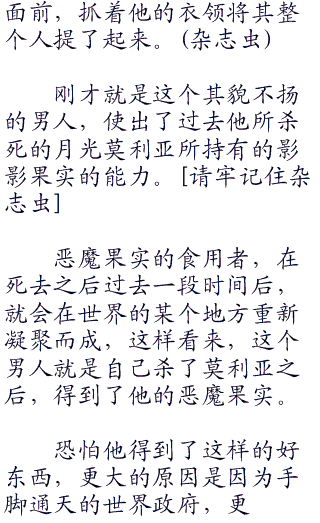 面前，抓着他的衣领将其整
个人提了起来。(杂志虫)
刚才就是这个其貌不扬
的男人，使出了过去他所杀
死的月光莫利亚所持有的影
影果实的能力。[请牢记住杂
志虫]
恶魔果实的食用者，在
死去之后过去一段时间后，
就会在世界的某个地方重新
凝聚而成，这样看来，这个
男人就是自己杀了莫利亚之
后，得到了他的恶魔果实。
恐怕他得到了这样的好
东西，更大的原因是因为手
脚通天的世界政府，更